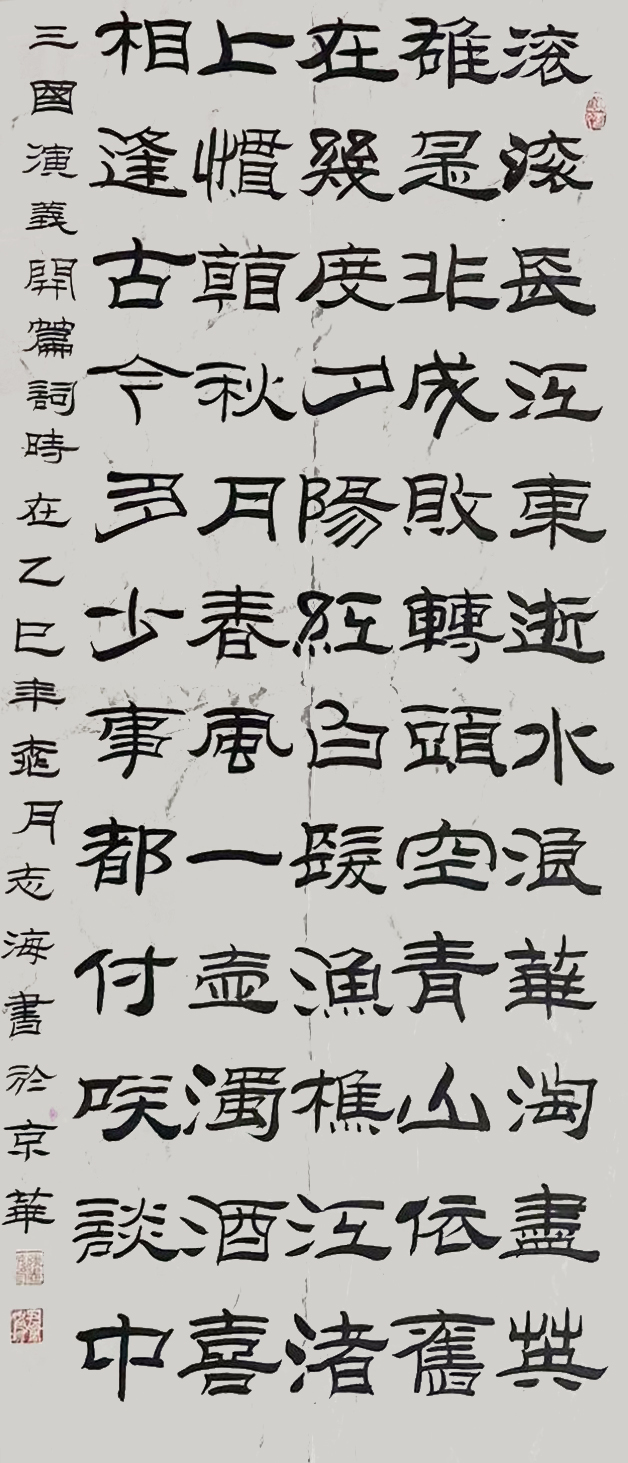 滚滚長江東逝水浪華淘盡英
雄是非成敗轉頭空青山依舊
在幾度夕陽紅白髮漁樵江渚
上慣看秋月春風一壺濁酒喜
相逢古今多少事都付笑談中
三國演義開篇詞時在乙巳年 月志海書於京華